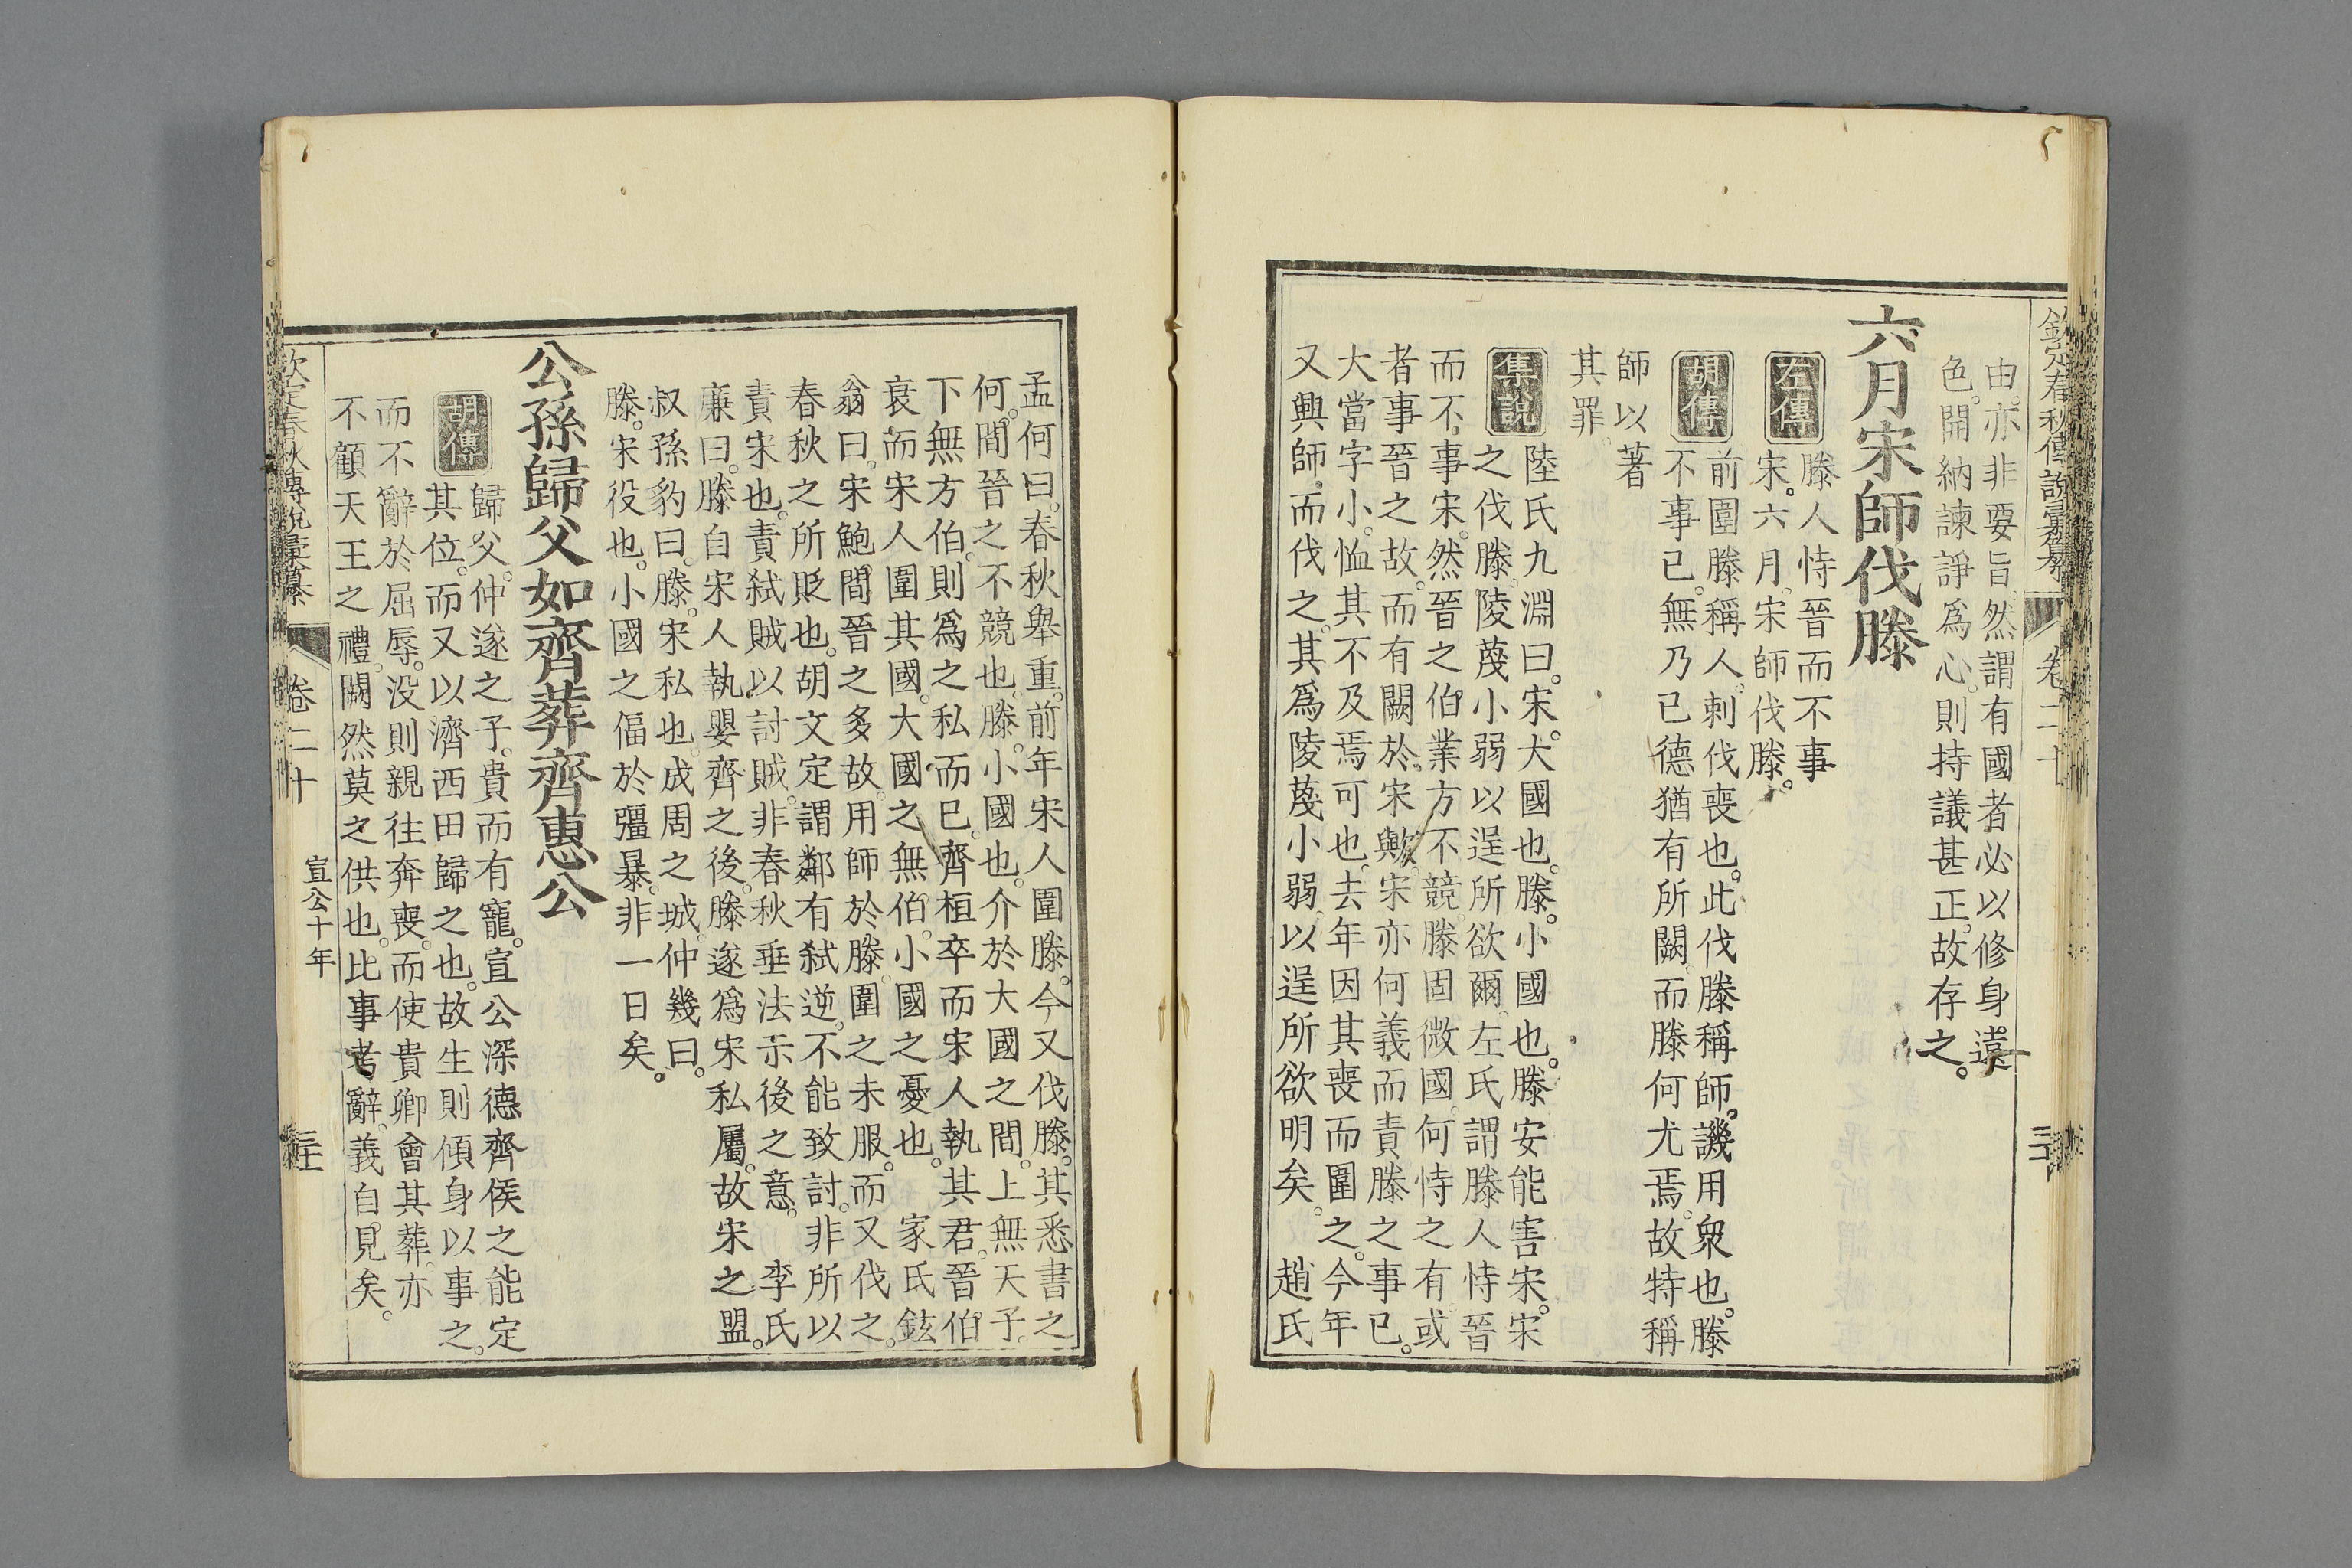 欽定春秋傳說彙纂 卷二十
由亦非要旨。然謂有國者必以修身遠
色。開納諫諍爲心。則持議甚正。故存之。
六月宋師伐滕
左傳
滕人恃晉而不事
宋。六月。宋師伐滕。
胡傳
前圍滕稱人。刺伐喪也。此伐滕稱師。譏用衆也。滕
不事已。無乃已德猶有所闕。而滕何尤焉。故特稱
師以著
其罪。
集說
陸氏九淵曰。宋。大國也。滕。小國也。滕安能害宋。宋
之伐滕。陵蔑小弱以逞所欲爾。左氏謂滕人恃晉
而不事宋。然晉之伯業方不競。滕固微國。何恃之有。或
者事晉之故。而有闕於宋歟。宋亦何義而責滕之事已。
大當字小。恤其不及焉可也。去年因其喪而圍之。今年
又興師而伐之。其爲陵蔑小弱。以逞所欲明矣。 趙氏
孟何曰。春秋舉重。前年宋人圍滕。今又伐滕。其悉書之
何。閒晉之不競也。滕。小國也。介於大國之閒。上無天子。
下無方伯。則爲之私而已。齊桓卒而宋人執其君。晉伯
衰而宋人圍其國。大國之無伯。小國之憂也。 家氏鉉
翁曰。宋鮑閒晉之多故。用師於滕。圍之未服。而又伐之。
春秋之所貶也。胡文定謂鄰有弑逆。不能致討。非所以
責宋也。責弑賊以討賊。非春秋垂法示後之意。 李氏
廉曰。滕自宋人執嬰齊之後。滕遂爲宋私屬。故宋之盟。
叔孫豹曰。滕。宋私也。成周之城。仲幾曰。
滕。宋役也。小國之偪於彊暴。非一日矣。
公孫歸父如齊葬齊惠公
胡傳
歸父。仲遂之子。貴而有寵。宣公深德齊侯之能定
其位。而又以濟西田歸之也。故生則傾身以事之。
而不辭於屈辱。沒則親往奔喪。而使貴卿會其葬。亦
不顧天王之禮。闕然莫之供也。比事考辭。義自見矣。
欽定春秋傳說彙纂 卷二十 宣公十年